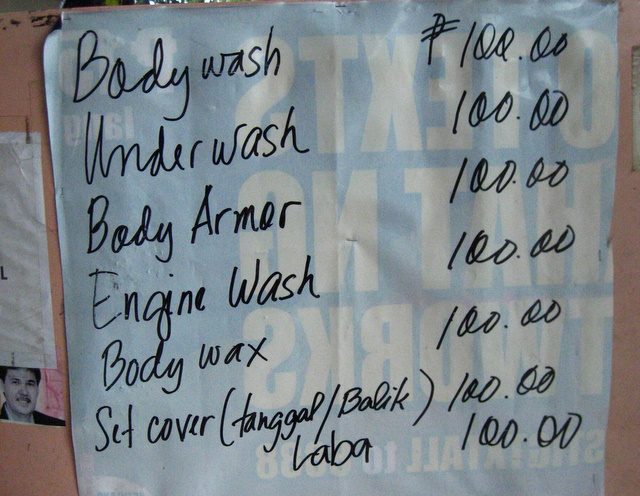 Body wash ₱100.00
Under wash 100.00
Body Armor 100.00
Engine Wash 100.00
Body wax 100.00
Set cover (tanggal/Balik) 100.00
Laba 100.00